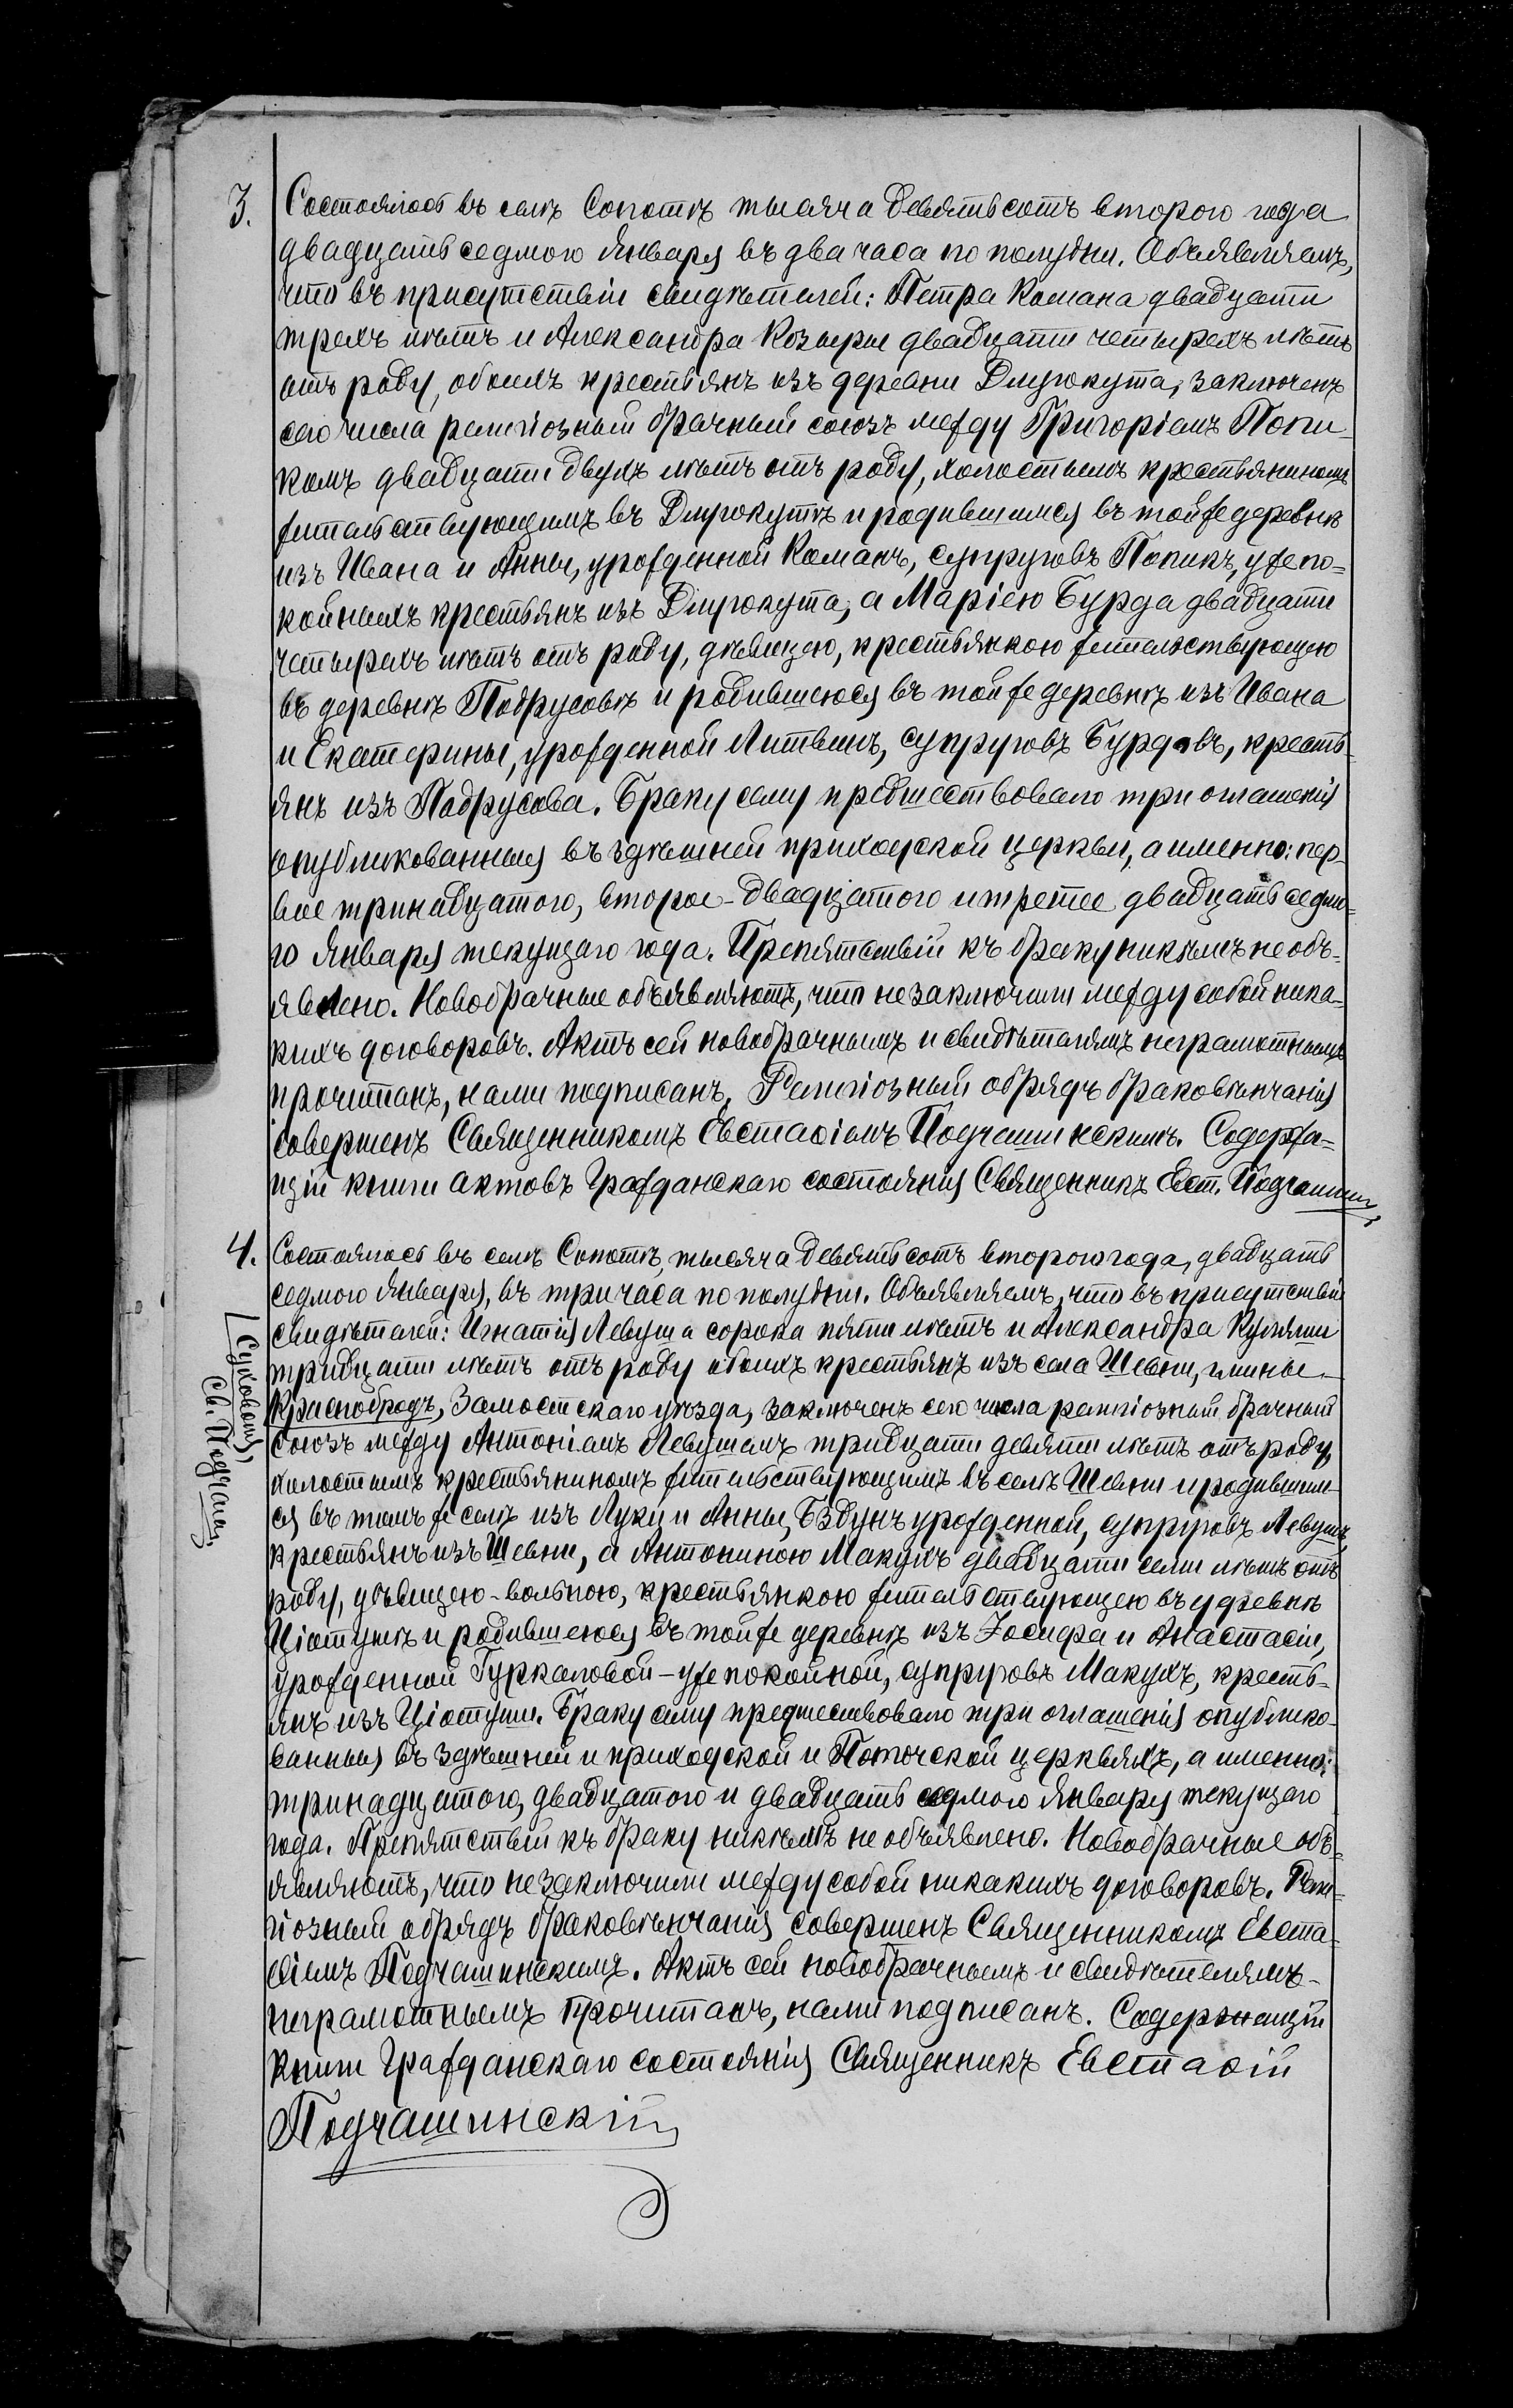 3.
Состоялось въ селѣ Сопотѣ тысяча девятьсотъ второго года
двадцать седьмого Января въ два часа по полудни. Объявляемъ,
что въ присутствіи свидѣтелей: Петра Комана двадцати
трехъ лѣтъ и Александра Козыры двадцати четырехъ лѣтъ
отъ роду, обоихъ крестьянъ изъ деревни Длугокута, заключенъ
сего числа религіозный брачный союзъ между Григоріемъ Попи-
комъ двадцати двухъ лѣтъ отъ роду, холостымъ крестьяниномъ
жительствующимъ въ Длугокутѣ и родившимся въ той же деревнѣ
изъ Ивана и Анны, урожденной Команъ, супруговъ Попикъ, уже по-
койныхъ крестьянъ изъ Длугокута, а Маріею Бурда двадцати
четырехъ лѣтъ отъ роду, дѣвицею, крестьянкою жительствующею
въ деревнѣ Подрусовѣ и родившеюся въ той же деревнѣ изъ Ивана
и Екатерины, урожденной Литвинъ, супруговъ Бурдовъ, кресть-
янъ изъ Подрусова. Браку сему предшествовало три оглашенія
опубликованныя въ здѣшней приходской церкви, а именно: пер-
вое тринадцатого, второе - двадцатого и третее двадцать седмо-
го Января текущаго года. Препятствій къ браку никѣмъ не объ-
явлено. Новобрачные объявляютъ, что не заключили между собой ника-
кихъ договоровъ. Актъ сей новобрачнымъ и свидѣтелямъ неграмотнымъ
прочитанъ, нами подписанъ, Религіозный обрядъ браковѣнчанія
совершенъ Священникомъ Евстафіемъ Подчашинскимъ. Содержа-
щій книги актовъ гражданскаго состоянія Священникъ Евст. Подчашин.
4.
Состоялось въ селѣ Сопотѣ, тысяча девятьсотъ второго года, двадцать
седмого Января, въ три часа по полудни. Объявляемъ, что въ присутствіи
свидѣтелей: Игнатія Левуша сорока пяти лѣтъ и Александра
тридцати лѣтъ отъ роду обоихъ крестьянъ изъ села Шевни, гмины
Краснобродъ, Замостскаго уѣзда, заключенъ сего числа религіозный брачный
союзъ между Антоніемъ Левушемъ тридцати девяти лѣтъ отъ роду,
холостымъ крестьяниномъ жительствующимъ въ селѣ Шевни и родившим-
ся въ томъ же селѣ изъ Луки и Анны, Бздунъ урожденной, супруговъ Левушъ,
крестьянъ изъ Шевни, а Антониною Макухъ двадцати семи лѣтъ отъ
роду, дѣвицею-вольною, крестьянкою жительствующею въ деревнѣ
Ціотушѣ и родившеюся въ той же деревнѣ изъ Іосифа и Анастасіи,
урожденной Гуркаловой - уже покойной, супруговъ Макухъ, кресть-
янъ изъ Ціотуши. Браку сему предшествовало три оглашенія опублико-
ванныя въ здѣшней и приходской и Поточской церквяхъ, а именно:
тринадцатого, двадцатого и двадцать седмого Января текущаго
года. Препятствій къ браку никѣмъ не объявлено. Новобрачные объ-
являютъ, что не заключили между собой никакихъ договоровъ. Рели-
гіозный обрядъ браковѣнчанія совершенъ Священникомъ Евста-
фіемъ Подчашинскимъ. Актъ сей новобрачнымъ и свидѣтелямъ-
неграмотнымъ прочитанъ, нами подписанъ. Содержащій
книги гражданскаго состоянія Священникъ Евстафій
Подчашинскій
Суховой
Св. Подчаш.